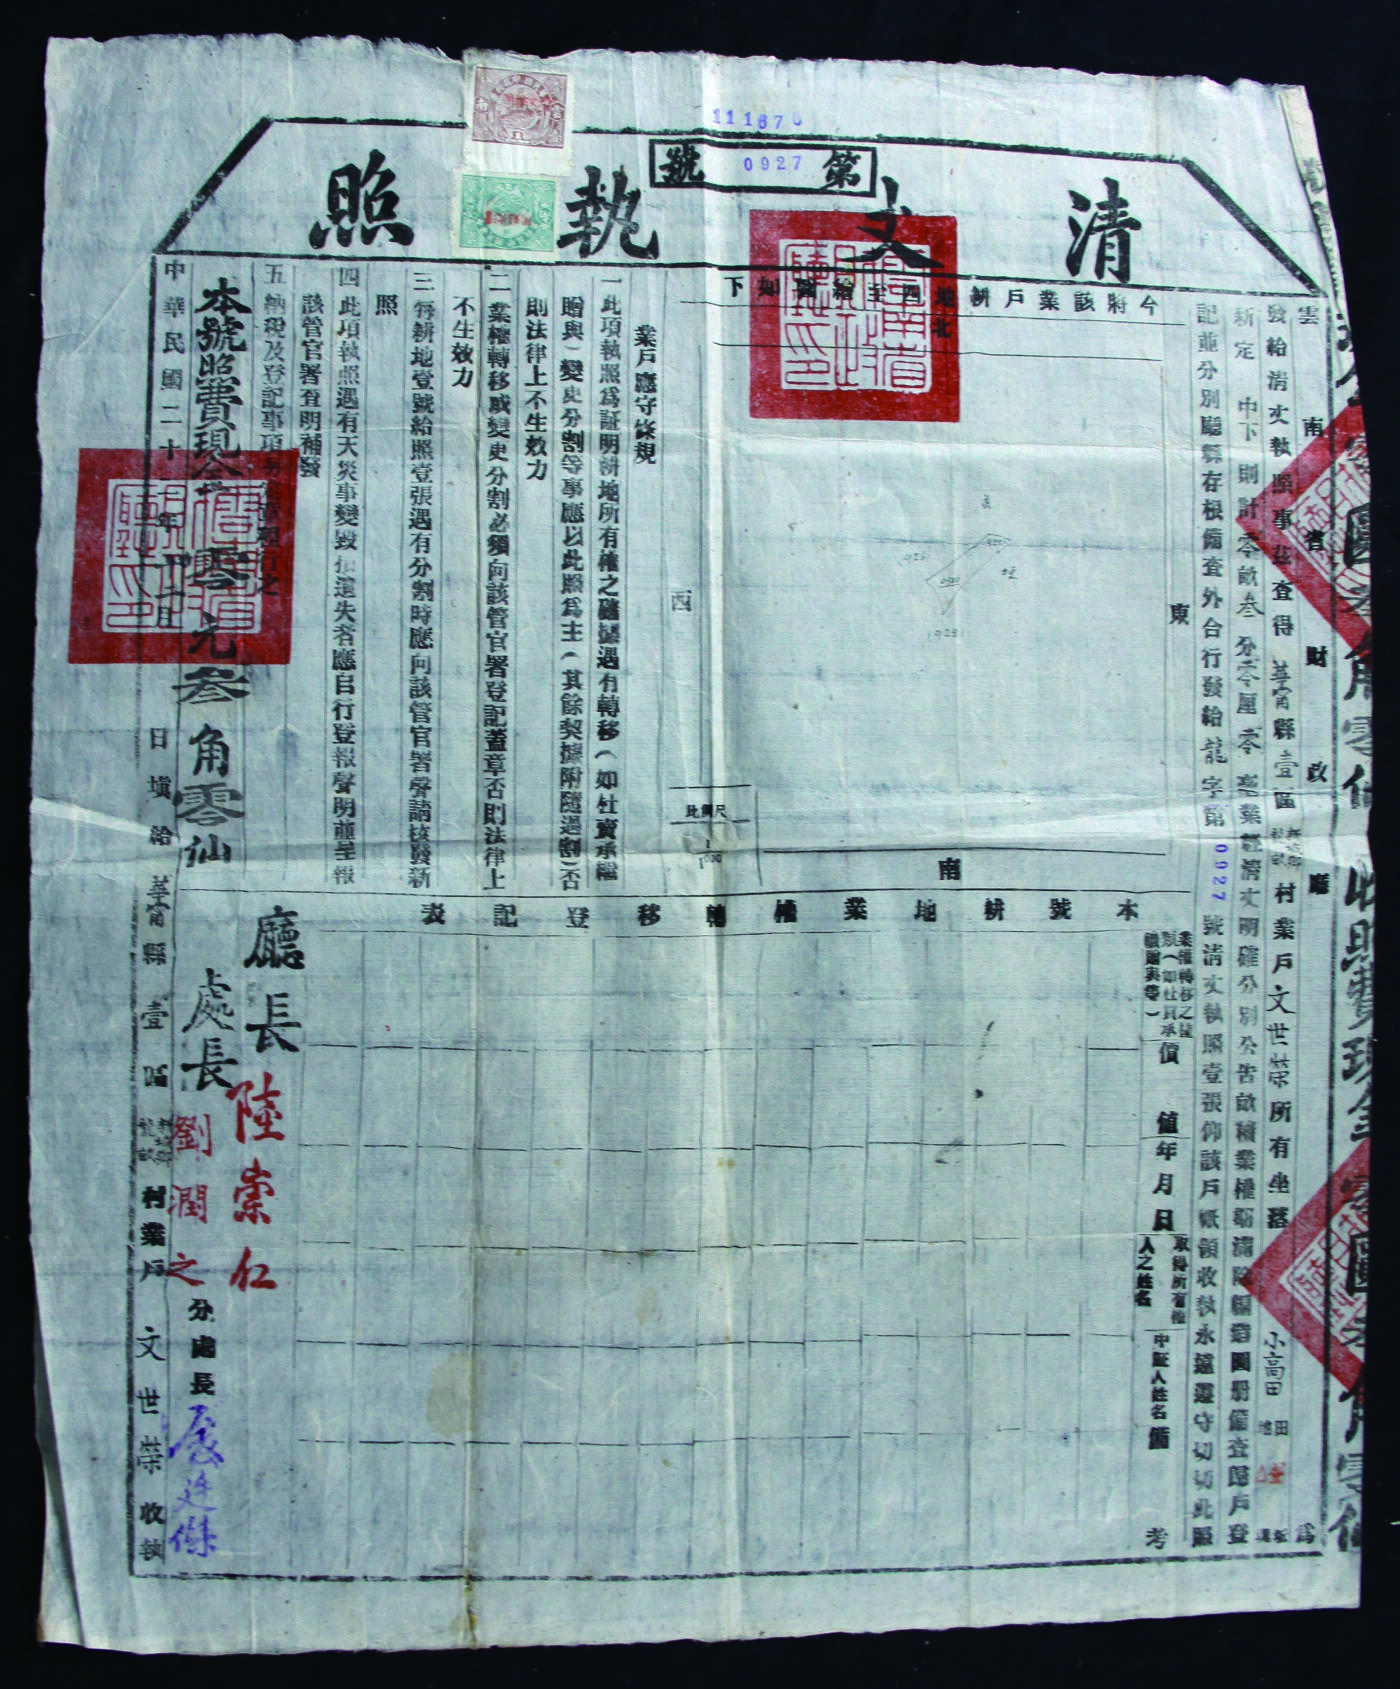 111670
第0927號
清丈執照
雲南財政廳為
發給清丈執照事茲查得華甯縣壹區村業戶文世榮所有坐落小高田
新定中下則計零畝叁分零厘零毫業經清丈明確分別公告畝積業權
圖册備查歸戶登
記並分別廳縣存根備查外合行發給龍字第0927號清丈執照壹張仰該戶祗領收執永遠遵守切切此照
今將該業戶耕地四至繪圖如下
北
東
南
西
尺例比
業戶應守條規
一此項執照為証明耕地所有權之確據遇有轉移(如杜賣承繼
贈與)變更分割等事應以此照為主(其餘契據附隨過割)否
則法律上不生效力
二業權轉移或變更分割必須向該管官署登記蓋章否則法律上
不生效力
三每耕地壹號給照壹張遇有分割時應向該管官署聲請核發新
照
四此項執照遇有天災事變毀損遺失者應自行登報聲明並呈報
該管官署查明補發
五納稅及登記事項
本號照費現金零元叁角零仙
中華民國二十
日填給華甯縣壹區村業戶文世榮收執
本號耕地業權轉移登記表
價值
年月日
取得所有權人之姓名
中証人姓名
備考
廳長陸崇仁
處長劉潤之
分處長